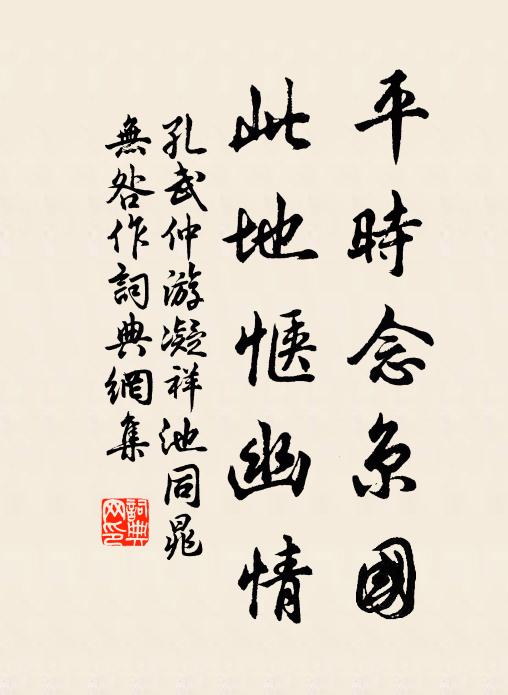 平時念京國
此地愜幽情
孔武仲游凝祥池同晁
無咎作詞典網集
詞典网印